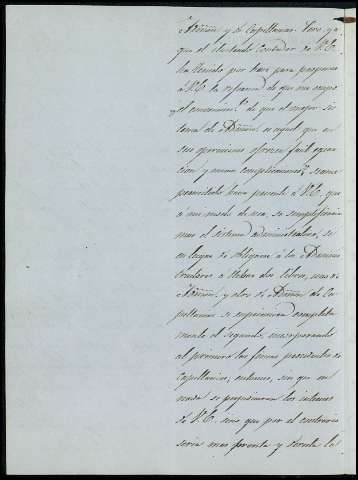 Admon. y de Capellanias. Pero ya
que el ilustrado Contador de V.E.
ha tenido por base para proponer
á V.E. la reforma de que me ocupo
y el convencimto. de que el mejor sis
tema de Admon. es aquel que en
sus operaciones ofrece facil ejecu
cion y menos complicaciones, séame
permitido hacer presente á V.E. que
á mi modo de ver, se simplificaria
mas el sistema administrativo, si
en lugar de obligarse á los
á llevar dos libros, uno de
Admon. y otro de Admon. de Ca
pellanias se suprimiera completa
mente el segundo, incorporando
al primero las fincas procedentes de
Capellanias, entonces, sin que en
nada se perjudicaran los intereses
de V.E. sino que por el contrario
seria mas pronta y directa la